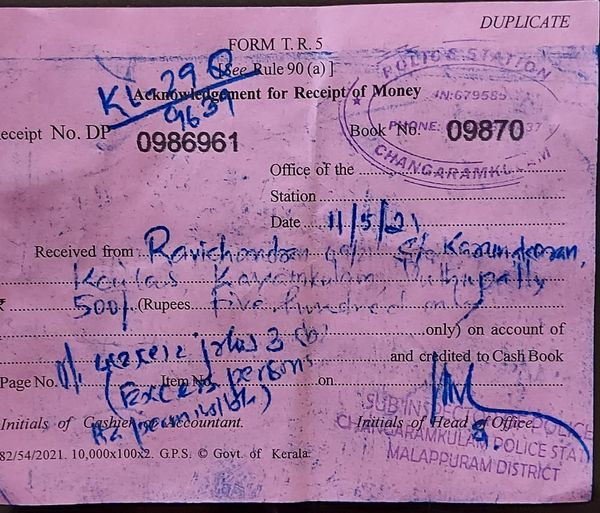 DUPLICATE
FORM T. R. 5
[See Rule 90 (a) ]
Acknowledgement for Receipt of Money
KL-29 Q
9639
POLICE STATION
PIN:679585
PHONE:
CHANGARAMKULAM
eceipt No. DP 0986961
Book No. 09870
Office of the
Station
Date 11/5/21
Received from Ravichandran S/o Karunakaran,
Kailas, Kayamkulam, Puthupally
₹ 500/- (Rupees Five hundred only
only) on account of
plus 3
and credited to Cash Book
Page No. Item No. on
(Excess persons
Initials of Cashier or Accountant.
Initials of Head of Office.
SUB INSPECTOR OF POLICE
CHANGARAMKULAM POLICE STAT
MALAPPURAM DISTRICT
82/54/2021. 10,000x100x2. G.P.S. © Govt. of Kerala.